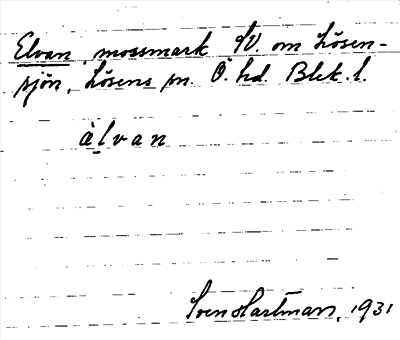 Elvan mossmark SV. om Lösen-
sjön, Lösens sn. Ö. hd. Blek. l.
àlvan
Sven Hartman, 1931